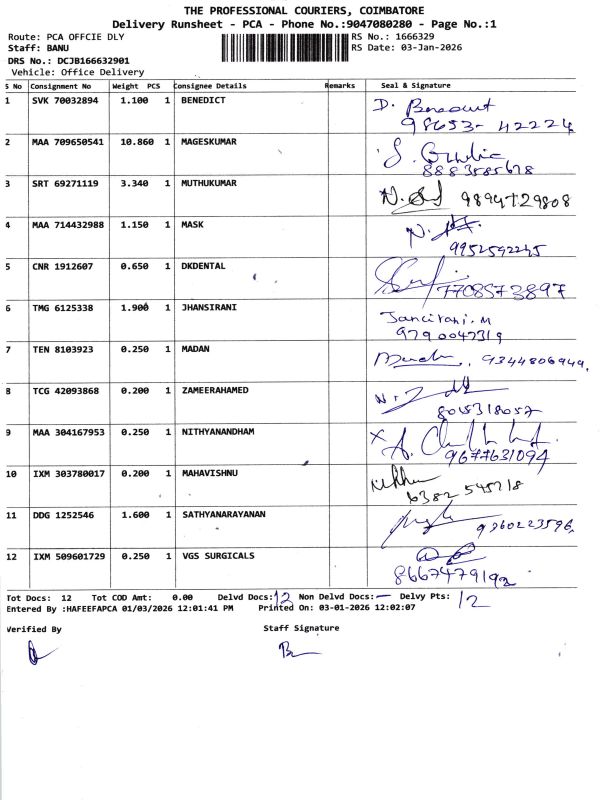 THE PROFESSIONAL COURIERS, COIMBATORE
Delivery Runsheet - PCA - Phone No.:9047080280 - Page No.:1
Route: PCA OFFCIE DLY
RS No.: 1666329
Staff: BANU
RS Date: 03-Jan-2026
DRS No.: DCJB166632901
Vehicle: Office Delivery
S No Consignment No Weight PCS Consignee Details Remarks Seal & Signature
1 SVK 70032894 1.100 1 BENEDICT D.
98653-42224
2 MAA 709650541 10.860 1 MAGESKUMAR
8883585678
3 SRT 69271119 3.340 1 MUTHUKUMAR
9894729808
4 MAA 714432988 1.150 1 MASK
9952592245
5 CNR 1912607 0.650 1 DKDENTAL
7708573897
6 TMG 6125338 1.900 1 JHANSIRANI Jancirani. M
9790047319
7 TEN 8103923 0.250 1 MADAN 9344806949
8 TCG 42093868 0.200 1 ZAMEERAHAMED
8015318057
9 MAA 304167953 0.250 1 NITHYANANDHAM
9677631094
10 IXM 303780017 0.200 1 MAHAVISHNU
6382 545218
11 DDG 1252546 1.600 1 SATHYANARAYANAN
9960223596
12 IXM 509601729 0.250 1 VGS SURGICALS
8667479192
Tot Docs: 12 Tot COD Amt: 0.00 Delvd Docs: 12 Non Delvd Docs: — Delvy Pts: 12
Entered By :HAFEEFAPCA 01/03/2026 12:01:41 PM Printed On: 03-01-2026 12:02:07
Verified By Staff Signature